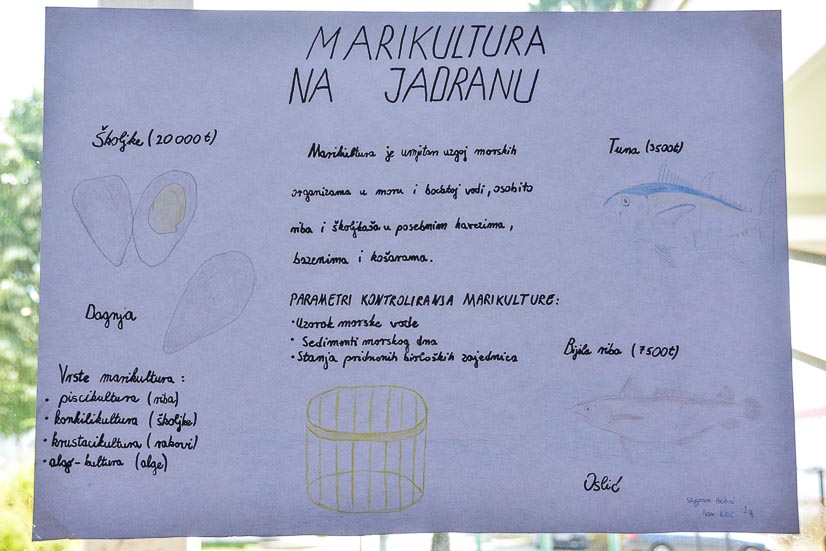 MARIKULTURA
NA JADRANU
Školjke (20 000 t)
Dagnja
Vrste marikultura :
• piscikultura (riba)
• konkilikultura (školjke)
• krustacikultura (rakovi)
• algo-kultura (alge)
Marikultura je umjetan uzgoj morskih
organizama u moru i bočatoj vodi, osobito
riba i školjkaša u posebnim kavezima,
bazenima i košarama.
PARAMETRI KONTROLIRANJA MARIKULTURE:
• Uzorak morske vode
• Sedimenti morskog dna
• Stanja pridnenih bioloških zajednica
Tuna (3500t)
Bijela riba (7500t)
Oslić